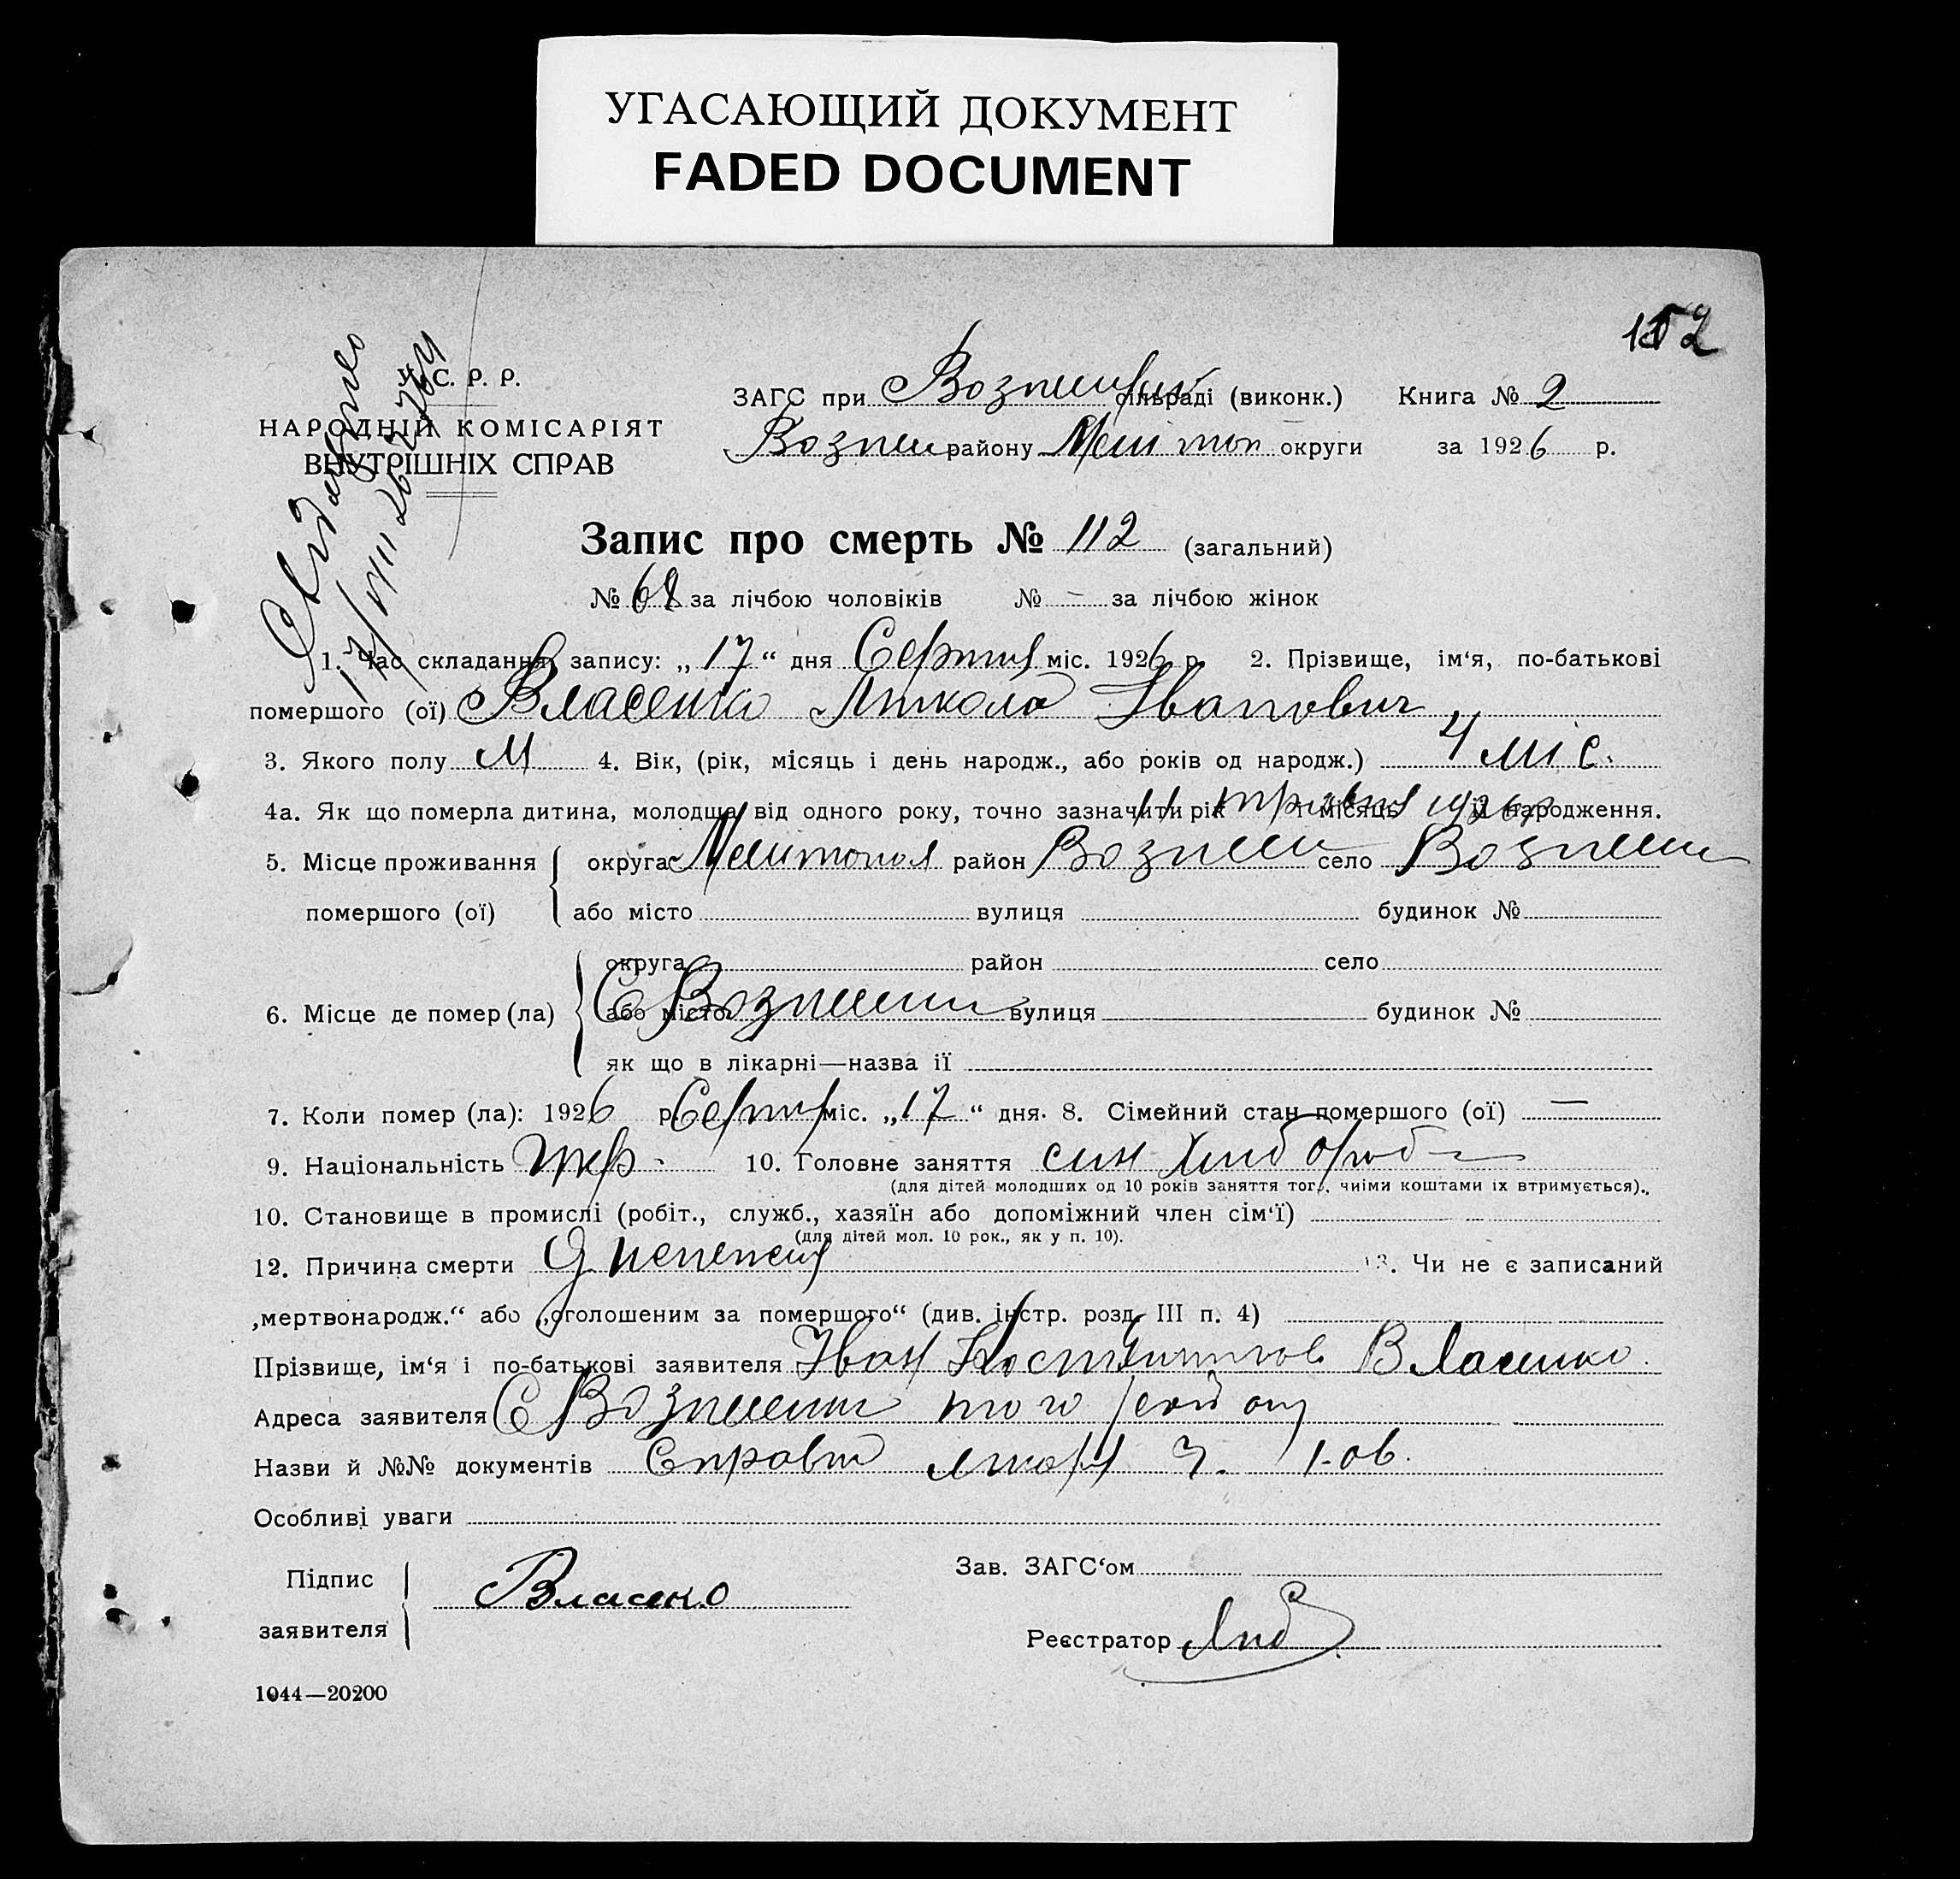 УГАСАЮЩИЙ ДОКУМЕНТ
FADED DOCUMENT
152
У. С. Р. Р.
НАРОДНІЙ КОМІСАРІЯТ
ВНУТРІШНІХ СПРАВ
ЗАГС при сільраді (виконк.) Книга № 2
Вознесен району Мелітоп округи за 1926 р.
Запис про смерть № 112 (загальний)
№ 68 за лічбою чоловіків № – за лічбою жінок
1. Час складання запису: „17“ дня Серпня міс. 1926 р. 2. Прізвище, ім‘я, по-батькові
помершого (ої) Власенко Микола Іванович
3. Якого полу М 4. Вік, (рік, місяць і день народж., або років од народж.) 4 міс.
4а. Як що померла дитина, молодща від одного року, точно зазначити рік 11 травня 1926 р і місяць її народження.
5. Місце проживання округа Мелитопол район Вознесен село Вознесен
помершого (ої) або місто вулиця будинок №
округа район село
6. Місце де помер (ла) або місто С Вознесен вулиця будинок №
як що в лікарні—назва ії
7. Коли помер (ла): 1926 р. Серпня міс. „17“ дня. 8. Сімейний стан помершого (ої) —
9. Національність Укр. 10. Головне заняття син хлібороб
(для дітей молодших од 10 років заняття того, чиїми коштами їх втримується).
10. Становище в промислі (робіт., служб., хазяїн або допоміжний член сім‘ї)
(для дітей мол. 10 рок., як у п. 10).
12. Причина смерти Диспепсия 13. Чи не є записаний
„мертвонародж.“ або „оголошеним за помершого“ (див. інстр. розд. III п. 4)
Прізвище, ім‘я і по-батькові заявителя Іван Костянтинов Власенко
Адреса заявителя С Вознесен того району
Назви й №№ документів Справка
Особливі уваги
Підпис
заявителя
Власенко
Зав. ЗАГС‘ом
Реєстратор
1044—20200